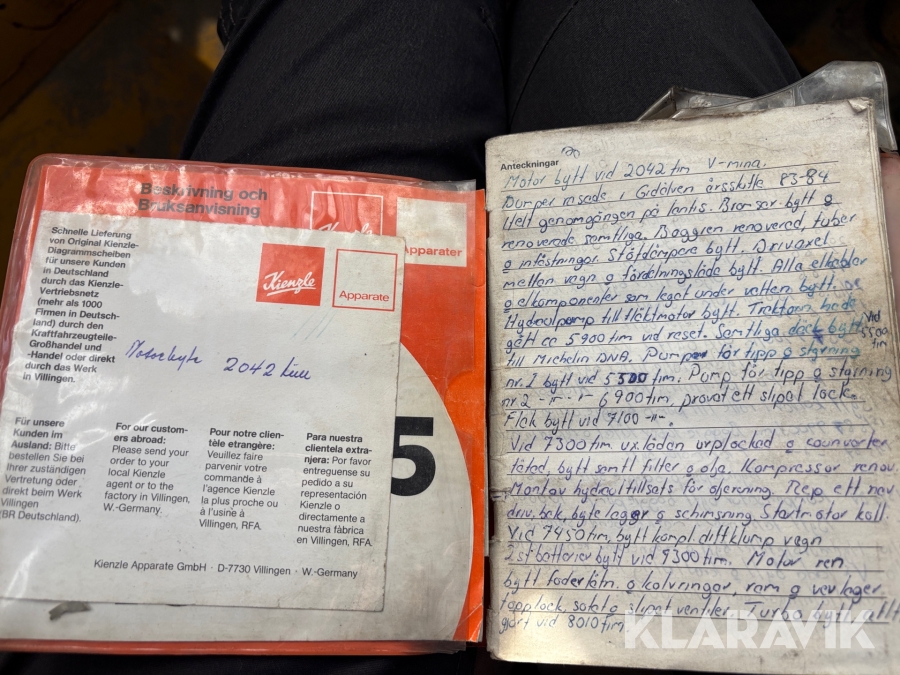 Beskrivning och
Bruksanvisning
Kienzle
Apparater
Schnelle Lieferung
von Original Kienzle-
Diagrammscheiben
für unsere Kunden
in Deutschland
durch das Kienzle-
Vertriebsnetz
(mehr als 1000
Firmen in Deutsch-
land) durch den
Kraftfahrzeugteile-
Großhandel und
-Handel oder direkt
durch das Werk
in Villingen.
Kienzle
Apparate
Motorbyte 2042 tim
5
Für unsere
Kunden im
Ausland: Bitte
bestellen Sie bei
Ihrer zuständigen
Vertretung oder
direkt beim Werk
Villingen
(BR Deutschland).
For our custom-
ers abroad:
Please send your
order to your
local Kienzle
agent or to the
factory in Villingen,
W.-Germany.
Pour notre clien-
tèle etrangère:
Veuillez faire
parvenir votre
commande à
l'agence Kienzle
la plus proche ou
à l'usine à
Villingen, RFA.
Para nuestra
clientela extra-
njera: Por favor
entreguense su
pedido a su
representación
Kienzle o
directamente a
nuestra fàbrica
en Villingen, RFA.
Kienzle Apparate GmbH · D-7730 Villingen · W.-Germany
Anteckningar
Motor bytt vid 2042 tim V-mina.
Dumper rasade i Gidälven årsskifte 83-84
Helt genomgången på Bromsar bytt o
renoverade samtliga. Baggen renoverad, tuber
o infästningar Stötdämpare bytt. Drivaxel
mellan vagn o fördelningslåda bytt. Alla elkabler
o elkomponenter som legat under vatten bytt.
Hydraulpump till fläktmotor bytt. Traktorn hade
gått ca 5900 tim vid reset. Samtliga däck bytt Vid 5500 tim
till Michelin DNA. Pumpar för tipp o styrning
nr. 1 bytt vid 5500 tim. Pump för tipp o styrning
nr 2 -"- "- 6900 tim, provat ett slipat lock.
Fläk bytt vid 7100 -"-.
Vid 7300 tim vx.lådan urplockad o counverter
tätad, bytt samtl filter o olja. Kompressor renov
Montav hydraultillsats för Rep. ett nav
driv. bck, byte lager o schimsning Startmotor kall
Vid 7450 tim, bytt kompl. diff.klump vagn
2 st batterier bytt vid 9300 tim. Motor ren
bytt foderlätn. o kolvringar, ram o vevlager
topplock, sotat o slipat ventiler Turbo bytt allt
gjort vid 8010 tim
KLARAVIK